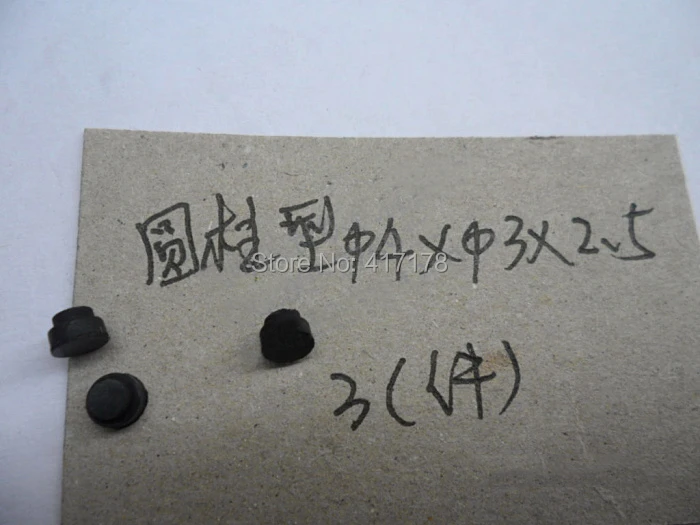 圆柱型φ4×φ3×2.5
Store No: 417178
3(件)